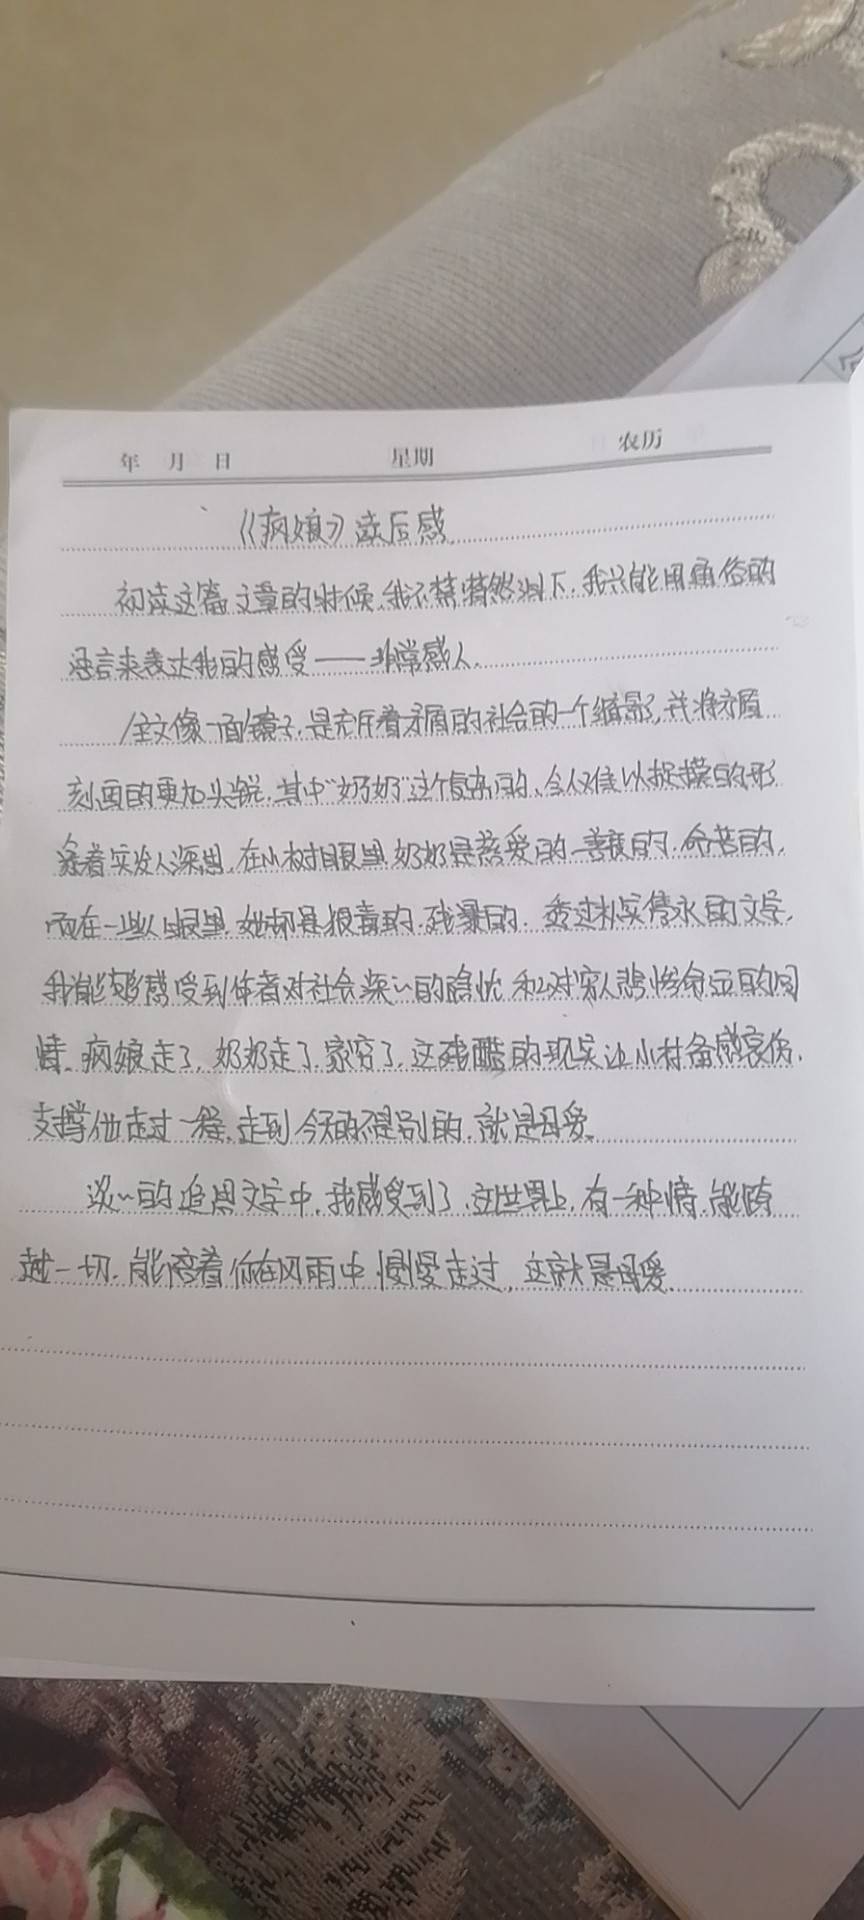 年 月 日 星期 农历
《疯娘》读后感
初读这篇文章的时候,我不禁潸然泪下,我只能用通俗的
语言来表达我的感受——非常感人。
全文像一面镜子,是充斥着矛盾的社会的一个缩影,并将矛盾
刻画的更加尖锐,其中“奶奶”这个复杂的、令人难以捉摸的形
象着实发人深思,在小树眼里,奶奶是慈爱的、善良的、命苦的,
而在一些人眼里,她却是狠毒的、残暴的。透过朴实隽永的文字,
我能够感受到作者对社会深深的隐忧和对穷人悲惨命运的同
情。疯娘走了,奶奶走了,家穷了,这残酷的现实让小树备感哀伤,
支撑他走过一程,走到今天的不是别的,就是母爱。
淡淡的追思文字中,我感受到了,这世界上,有一种情,能跨
越一切,能陪着你在风雨中慢慢走过,这就是母爱。